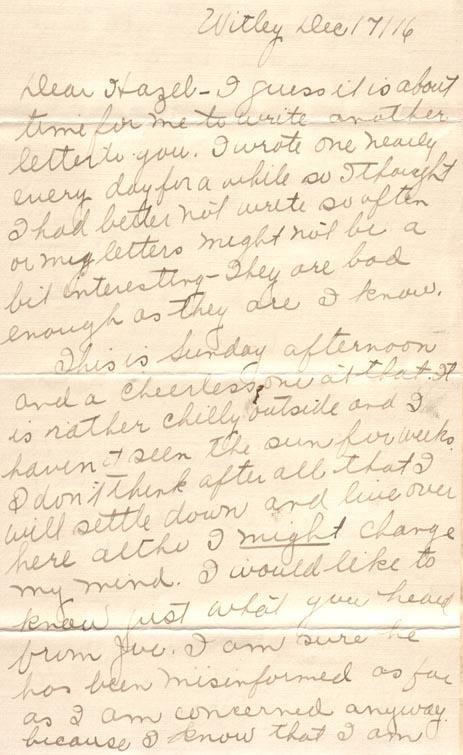 Witley Dec 17/16
Dear Hazel - I guess it is about
time for me to write another
letter to you. I wrote one nearly
every day for a while so I thought
I had better not write so often
or my letters might not be a
bit interesting - They are bad
enough as they are I know.
This is Sunday afternoon
and a cheerless one at that. It
is rather chilly outside and I
haven't seen the sun for weeks.
I don't think after all that I
will settle down and live over
here altho I might change
my mind. I would like to
know just what you heard
from . I am sure he
has been misinformed as far
as I am concerned anyway
because I know that I am